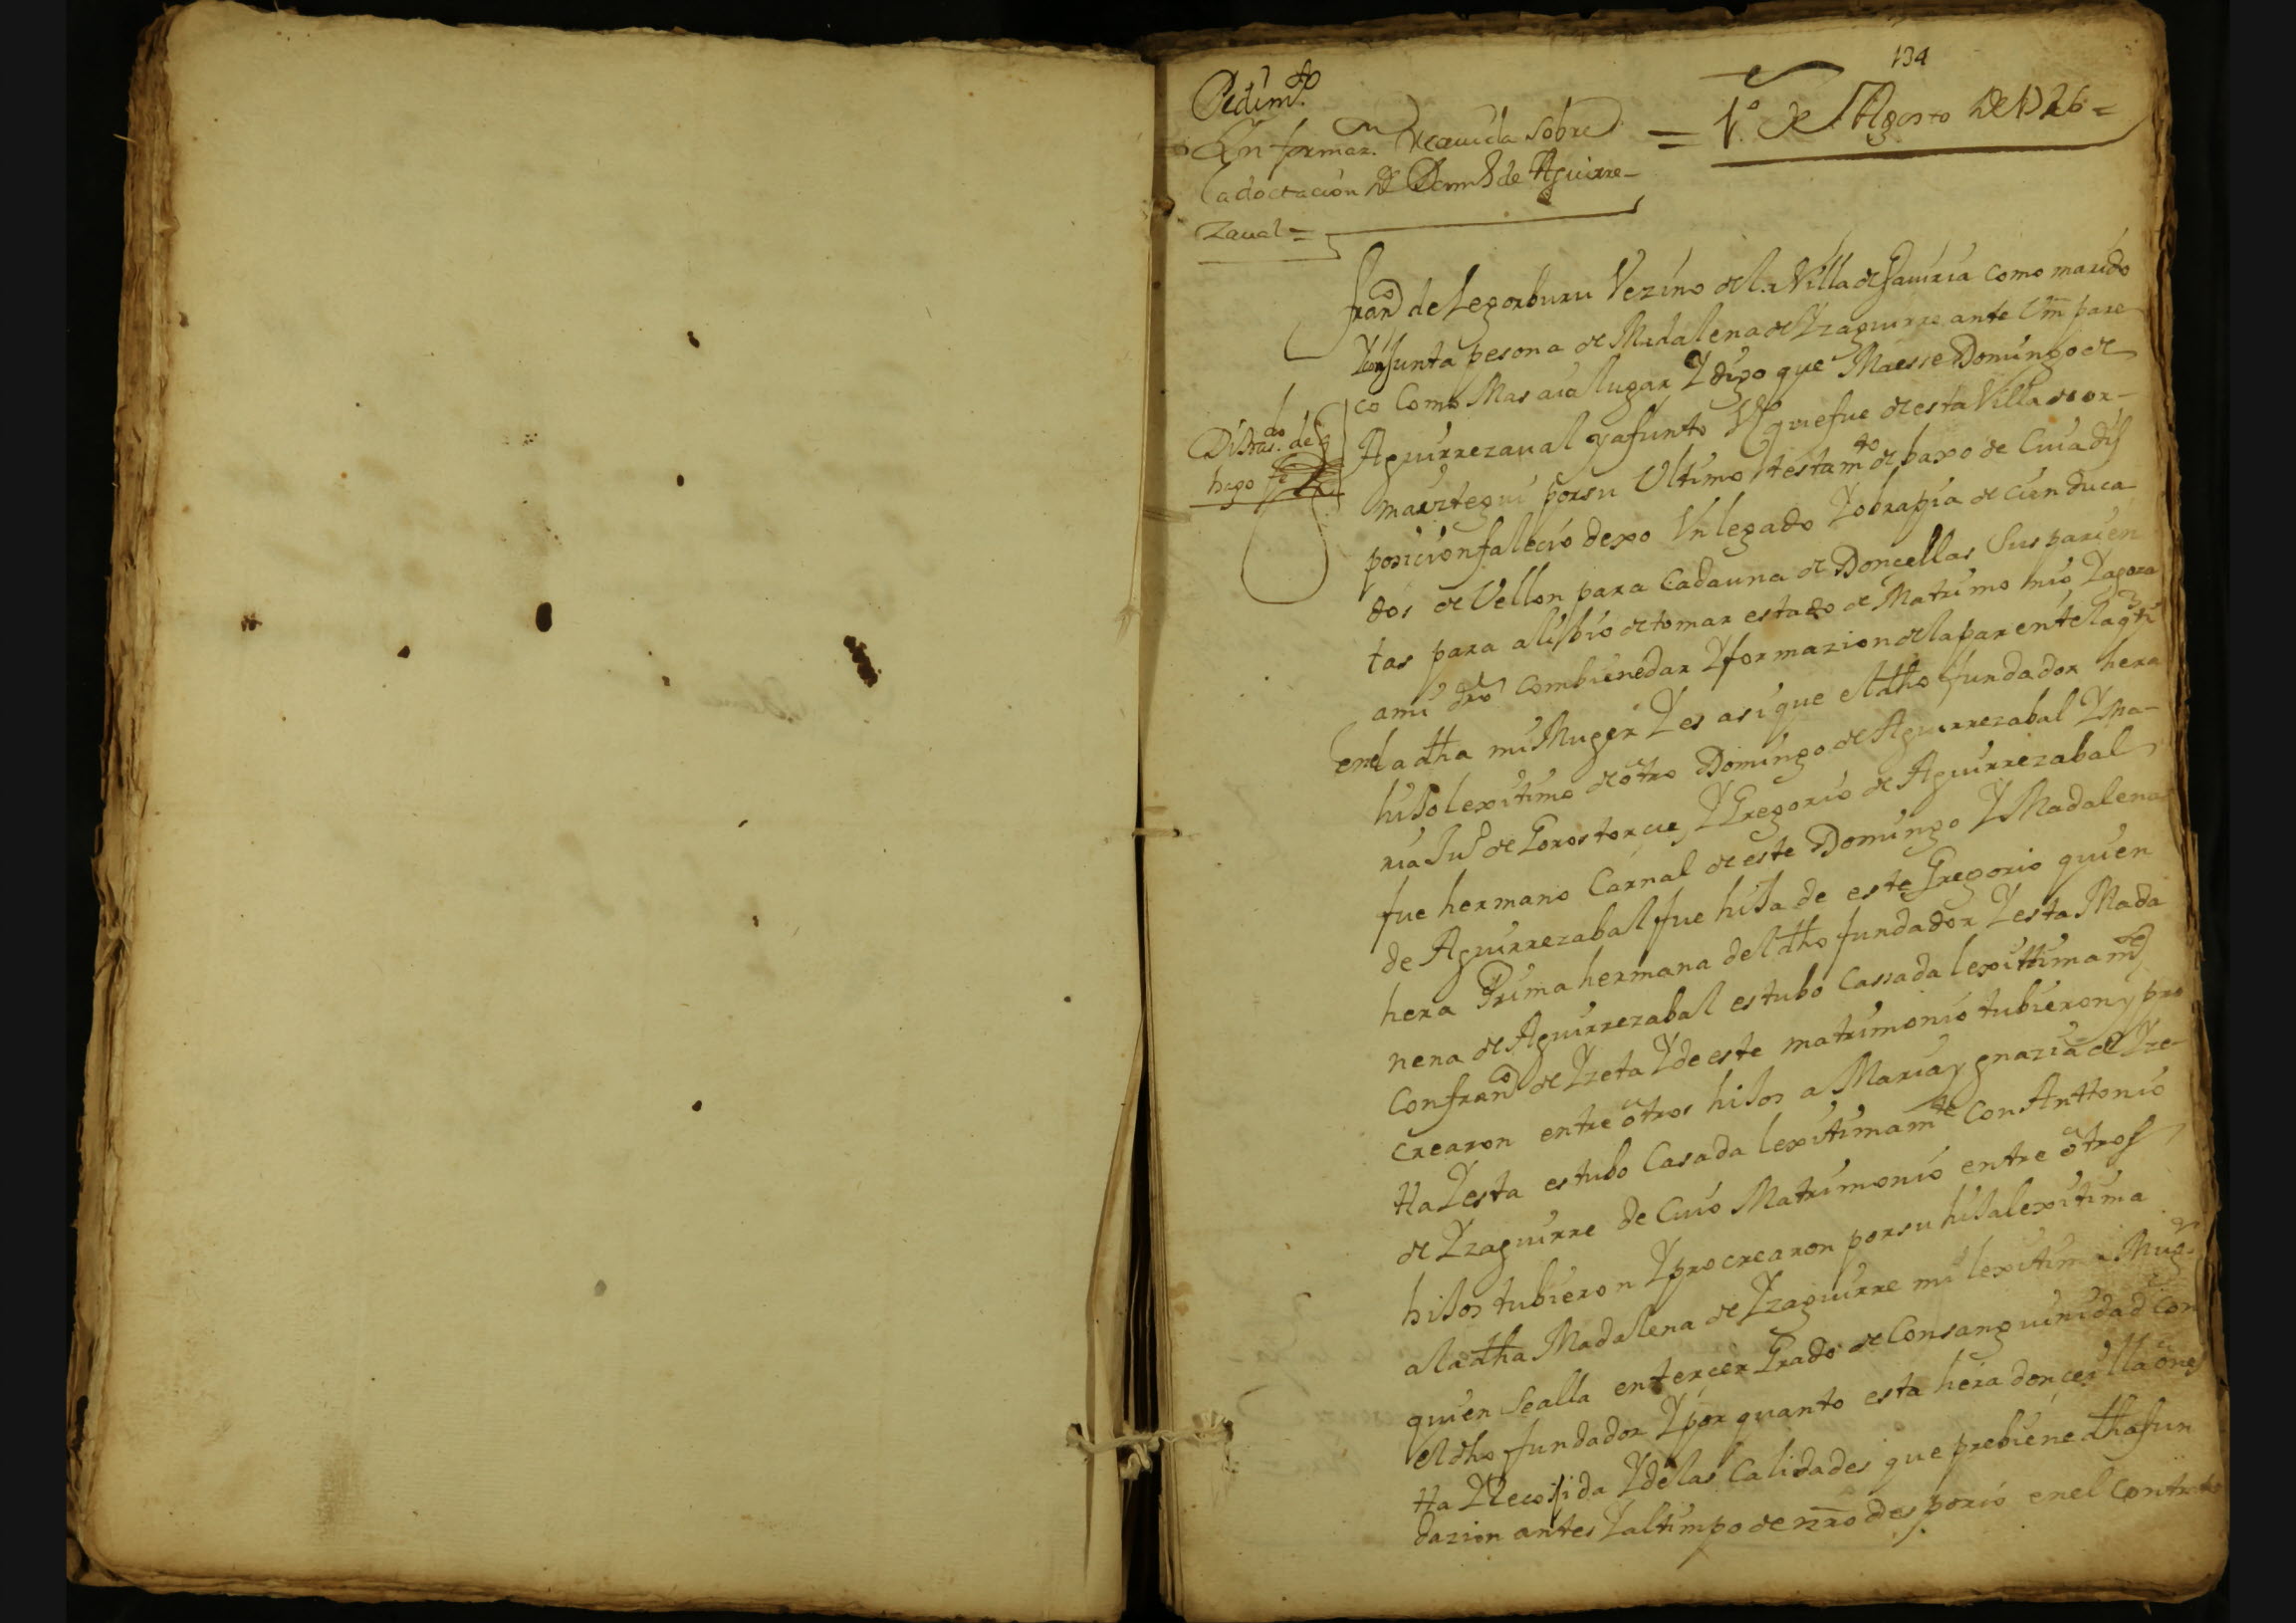 134
Pedim.to
Ynformaz.on Recauida sobre = 1.º de Agosto de 1726 =
la doctacion de Dom.º de Aguirre-
zaual =
Fran.co de Legorburu Vezino de la Villa de Gauiria como marido
Y conjunta persona de Madalena de Yzaguirre ante Vm pares
co Como Mas aia lugar Y digo que Maesse Domingo de
Aguirrezaual ya funto Vº que fue de esta Villa de or-
maiztegui por su Ultimo testam.to de baxo de Cuia dis
posicion falecio dexo Vn legado Y obrapia de cien duca
dos de Vellon para Cada una de Doncellas Sus parien
tas para alibio de tomar estado de Matrimonio Y agora
a mi dro combiene dar Yformazion de la parentela q.e ti
ene la dha mi Muger Y es asi que el dho fundador hera
hijo lexitimo de otro Domingo de Aguirrezabal Y Ma-
ria Ju.s de Gorostorcue, Y Gregorio de Aguirrezabal
fue hermano Carnal de este Domingo Y Madalena
de Aguirrezabal fue hija de este Gregorio quien
hera Prima hermana del dho fundador Y esta Mada
nena de Aguirrezabal estubo Cassada lexittimam.te
Con fran.co de Yzeta Y de este matrimonio tubieron y pro
crearon entre otros hijos a Maria ygnazia de Yze-
tta Y esta estubo Casada lexitimam.te con Anttonio
de Yzaguirre de Cuio Matrimonio entre otros
hijos tubieron Y procrearon por su hija lexitima
a la dha Madalena de Yzaguirre mi lexitima Mug.r
quien se alla en tercer Grado de Consanguinidad con
el dho fundador Y por quanto esta hera doncella ones
tta Y Recojida Y de las Calidades que prebiene dha fun
dazion antes Y al timpo de nro desposorio en el Contrato
Distras.do de q
hago fe